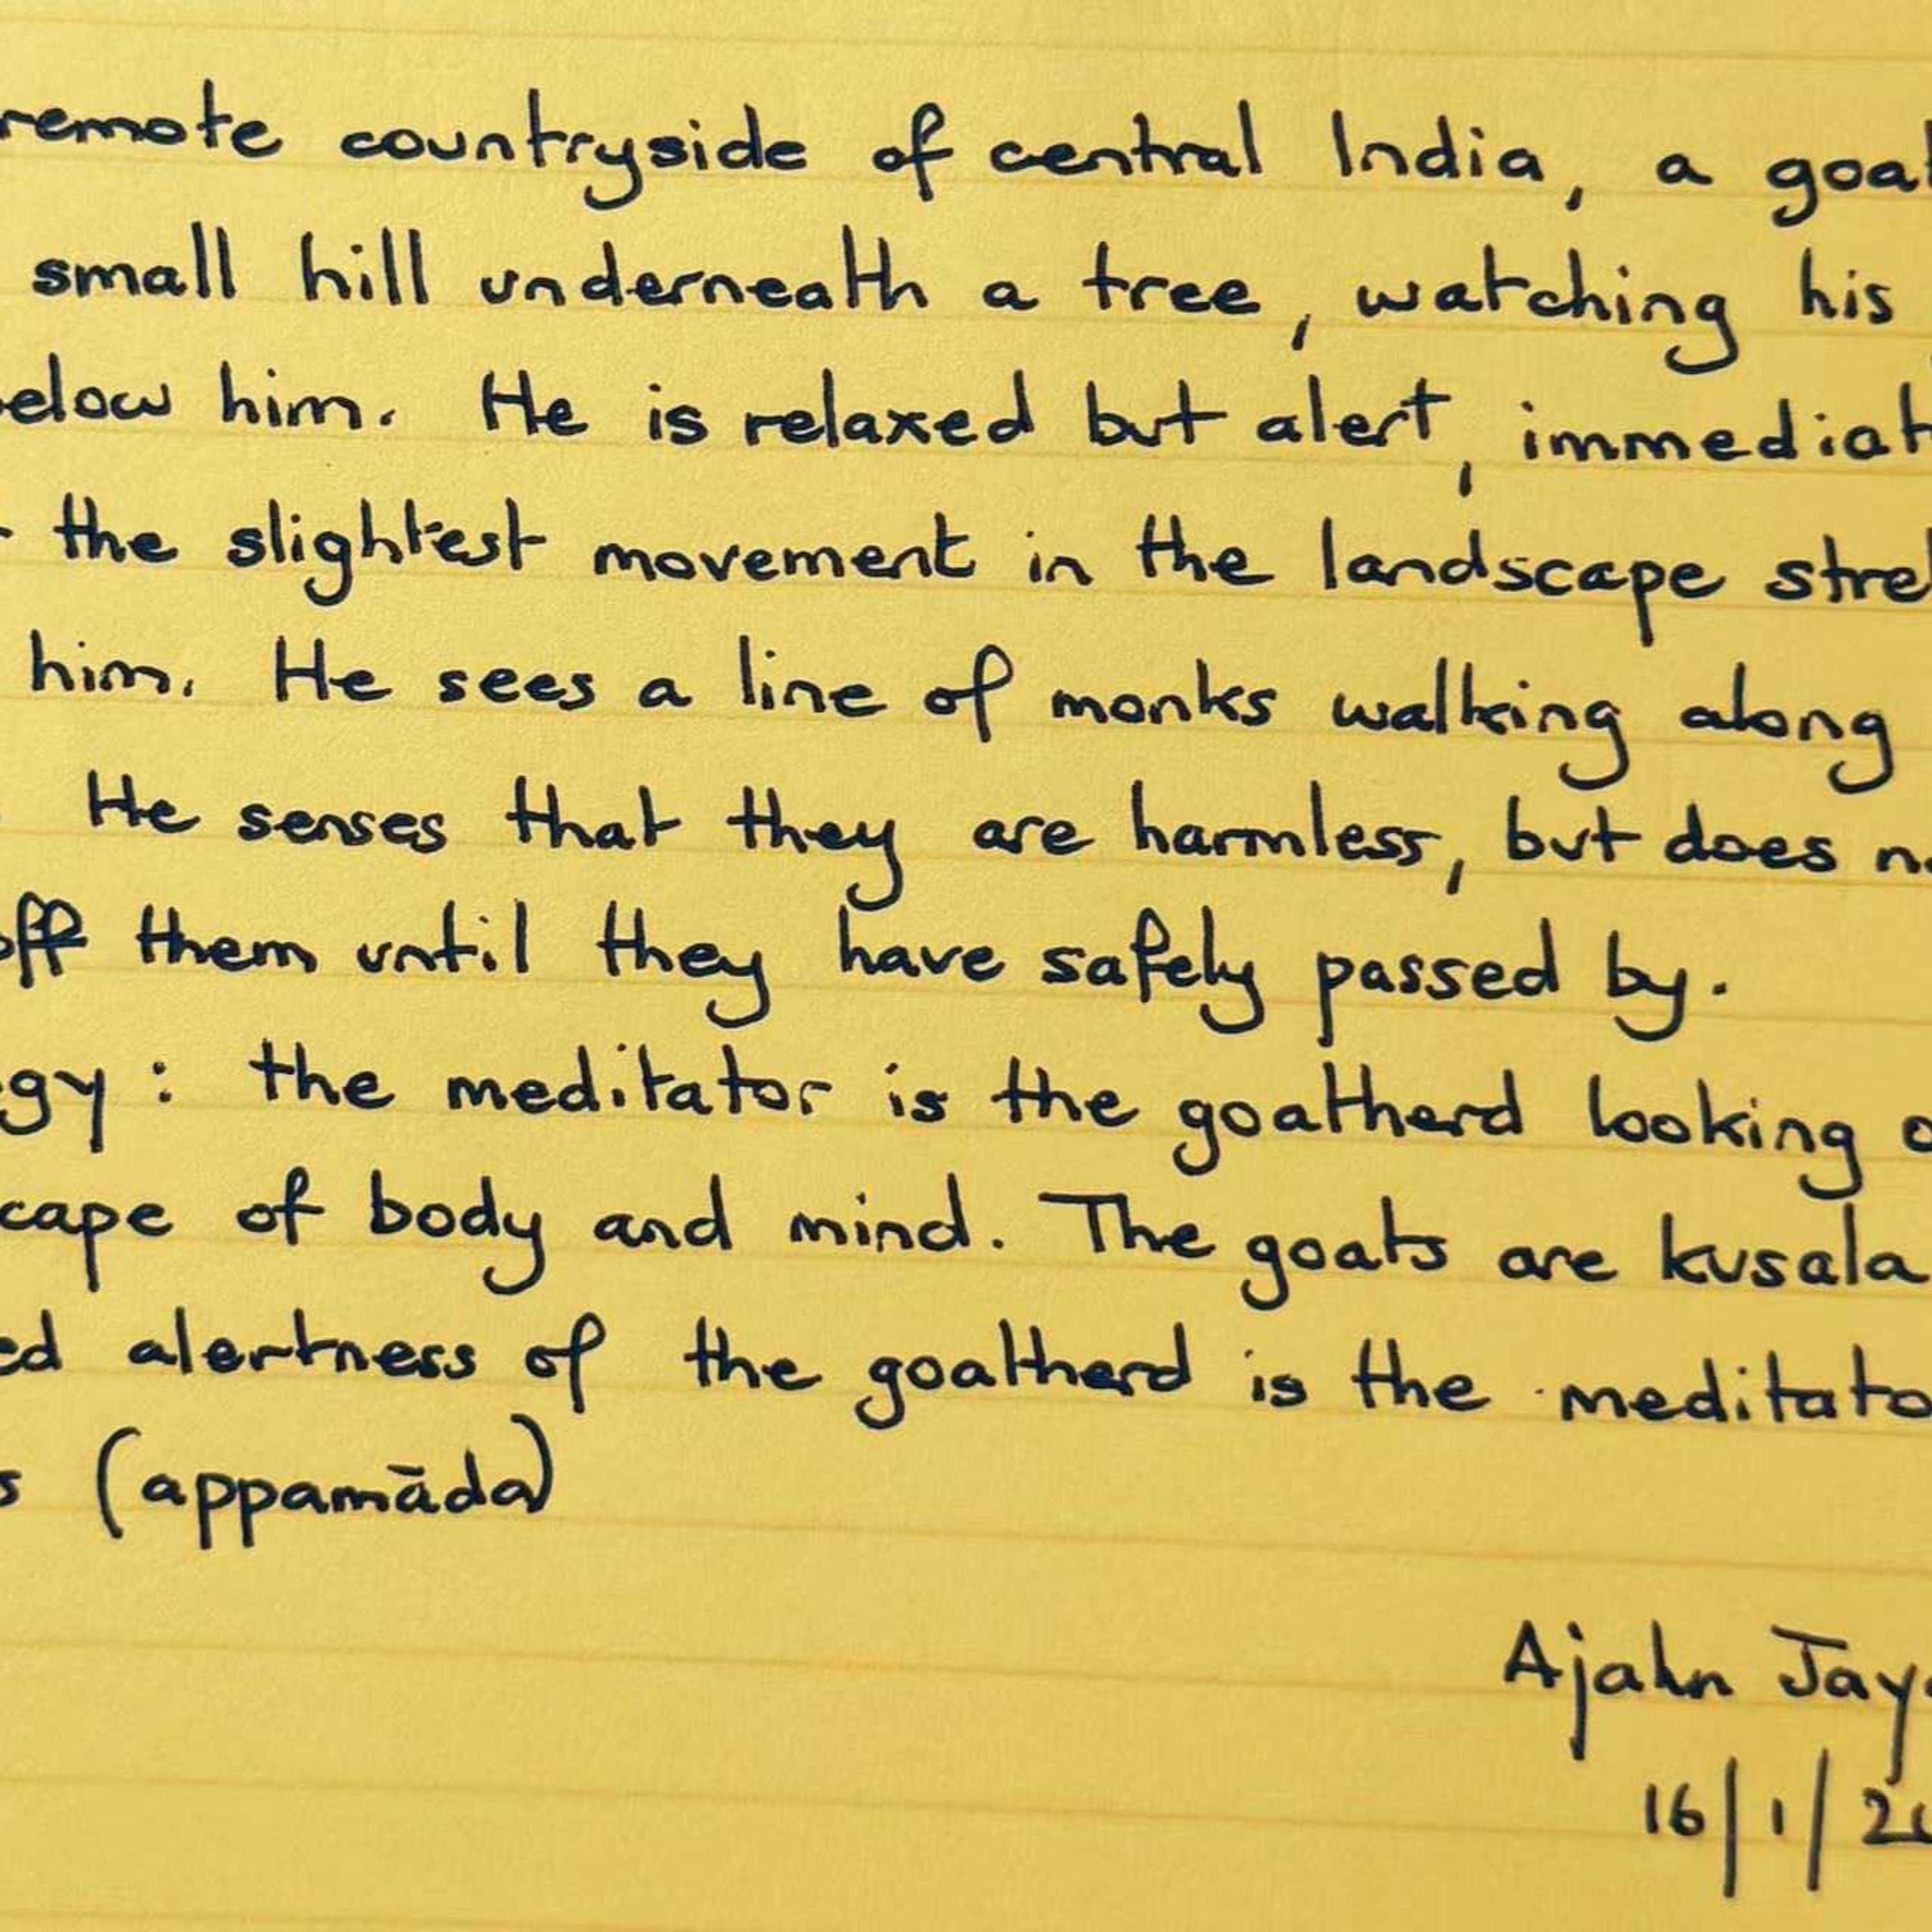 remote countryside of central India, a goat
small hill underneath a tree, watching his
elow him. He is relaxed but alert, immediat
the slightest movement in the landscape stret
him. He sees a line of monks walking along
He senses that they are harmless, but does no
off them until they have safely passed by.
gy : the meditator is the goatherd looking o
cape of body and mind. The goats are kusala
ed alertness of the goatherd is the meditato
s (appamāda)
Ajahn Jay
16/1/20